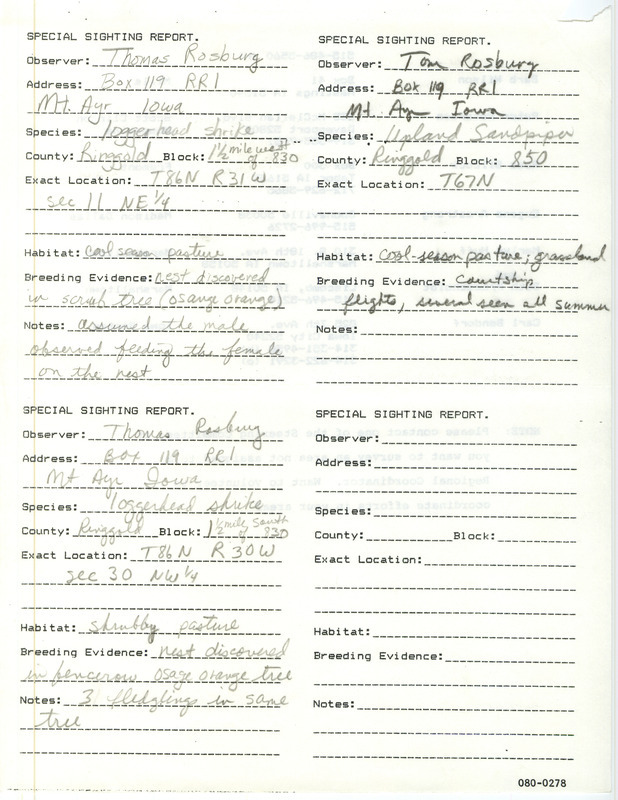 SPECIAL SIGHTING REPORT.
Observer: Thomas Rosburg
Address: Box 119 RR1
Mt. Ayr Iowa
Species: loggerhead shrike
County: Ringgold Block: 1½ mile west of 830
Exact Location: T86N R31W
sec 11 NE ¼
Habitat: cool season pasture
Breeding Evidence: nest discovered
in scrub tree (osange orange)
Notes: assumed the male
observed feeding the female
on the nest
SPECIAL SIGHTING REPORT.
Observer: Tom Rosburg
Address: Box 119 RR1
Mt Ayr Iowa
Species: Upland Sandpiper
County: Ringgold Block: 850
Exact Location: T67N
Habitat: Cool-season pasture; grassland
Breeding Evidence: Courtship
flights, several seen all summer
Notes:
SPECIAL SIGHTING REPORT.
Observer: Thomas Rosburg
Address: Box 119 RR1
Mt Ayr Iowa
Species: loggerhead shrike
County: Ringgold Block: 1½ mile South of 830
Exact Location: T86N R30W
sec 30 NW ¼
Habitat: shrubby pasture
Breeding Evidence: nest discovered
in fencerow osage orange tree
Notes: 3 fledglings in same
tree
SPECIAL SIGHTING REPORT.
Observer:
Address:
Species:
County: Block:
Exact Location:
Habitat:
Breeding Evidence:
Notes:
080-0278